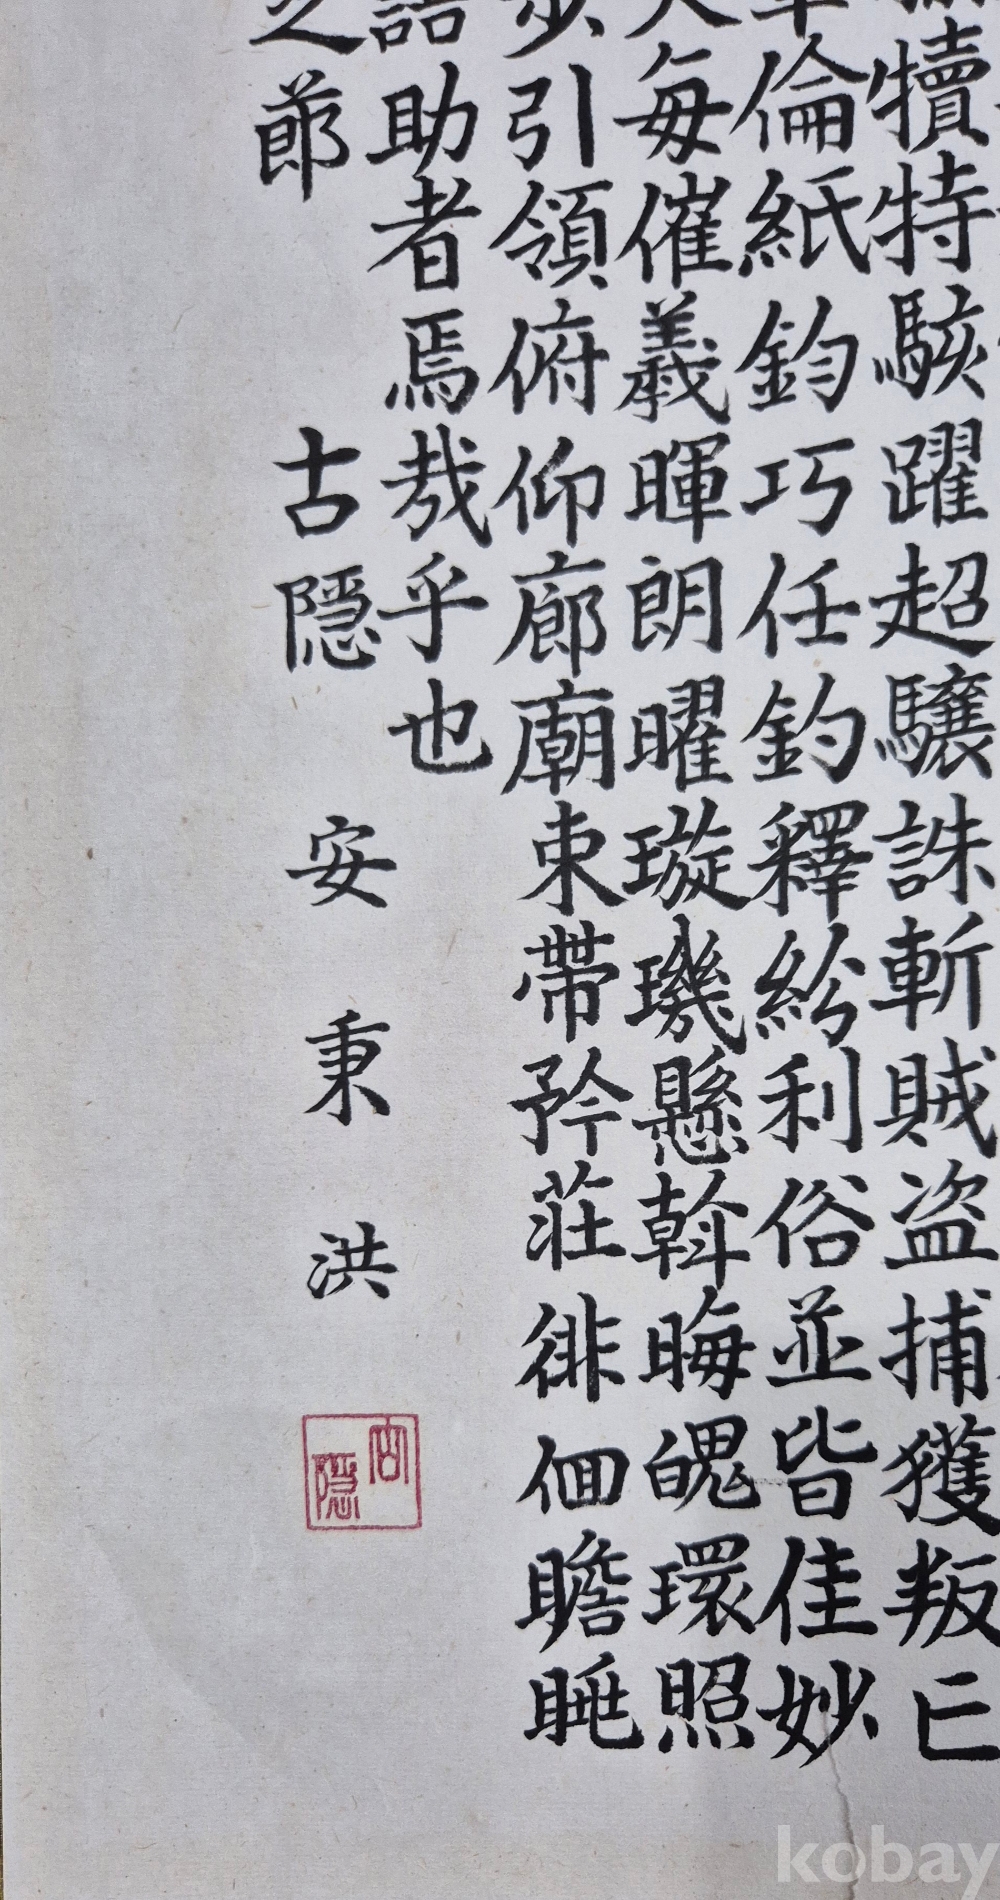 犢特駭躍超驤誅斬賊盜捕獲叛亡
倫紙鈞巧任釣釋紛利俗並皆佳妙
矢每催羲暉朗曜璇璣懸斡晦魄環照
步引領俯仰廊廟束帶矜莊徘徊瞻眺
語助者焉哉乎也
之節 古隱 安秉洪
隱
kobay